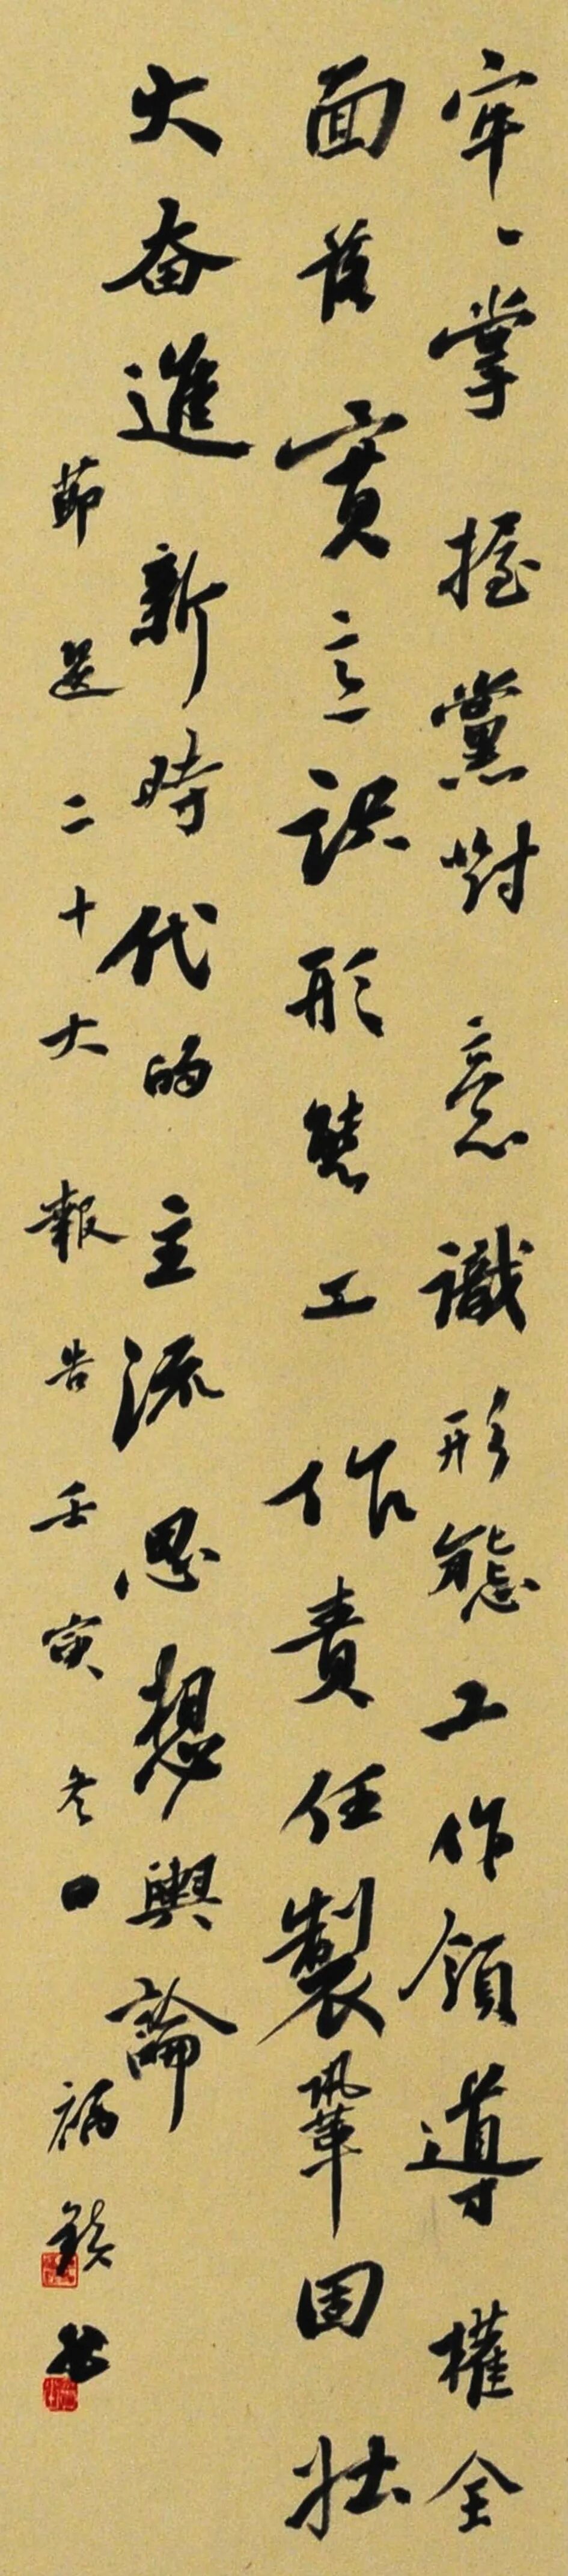 牢、掌握黨對意識形態工作領導權全
面落實意識形態工作責任製鞏固壯
大奋進新時代的主流思想輿論
節選二十大報告壬寅冬日